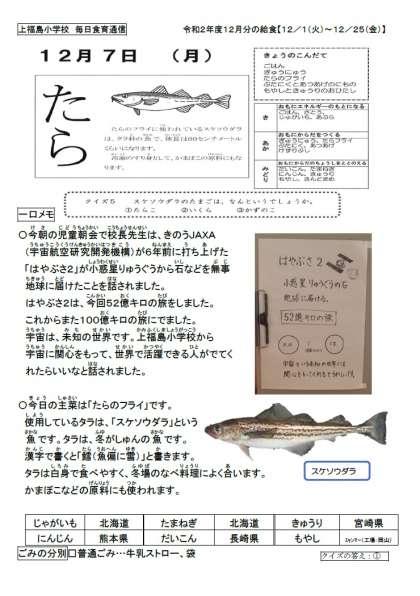 上福島小学校　毎日食育通信
令和2年度12月分の給食【12／1(火)～12／25(金)】
12月7日　（月）
きょうのこんだて
ごはん
ぎゅうにゅう
たらのフライ
ぶたにくとあつあげのにもの
もやしときゅうりのおひたし
たら
たらのフライに使われているスケソウダラ
は、タラ科の魚で、体長は80センチメートル
くらいになります。
冷凍のすり身として、かまぼこの原料にもな
ります。
き
おもにエネルギーのもとになる
ごはん、さとう、
じゃがいも、あぶら
あか
おもにからだをつくる
ぎゅうにゅう、たら
ぶたにく、あつあげ
みどり
おもにからだのちょうしをととのえる
だいこん、たまねぎ
にんじん、きゅうり
クイズ5　スケソウダラのたまごは、なんというでしょうか。
①たらこ　②いくら　③かずのこ
一口メモ
○今朝の児童朝会で校長先生は、きのうJAXA
(宇宙航空研究開発機構)が6年前に打ち上げた
「はやぶさ2」が小惑星りゅうぐうから石などを無事
地球に届けたことを話されました。
はやぶさ2は、今回52億キロの旅をしました。
これからまた100億キロの旅にでました。
宇宙は、未知の世界です。上福島小学校から
宇宙に関心をもって、世界で活躍できる人がでてく
れたらいいなと話されました。
はやぶさ2
小惑星りゅうぐうの石
地球に届ける。
52億キロの旅
○今日の主菜は「たらのフライ」です。
使用しているタラは、「スケソウダラ」という
魚です。タラは、冬がしゅんの魚です。
漢字で書くと「鱈(魚偏に雪)」と書きます。
タラは白身で食べやすく、冬場のなべ料理によく合います。
かまぼこなどの原料にも使われます。
スケソウダラ
じゃがいも　北海道　たまねぎ　北海道　きゅうり　宮崎県
にんじん　熊本県　だいこん　長崎県　もやし　ﾐｬﾝﾏｰ(工場:岡山)
ごみの分別□普通ごみ…牛乳ストロー、袋
クイズの答え：①